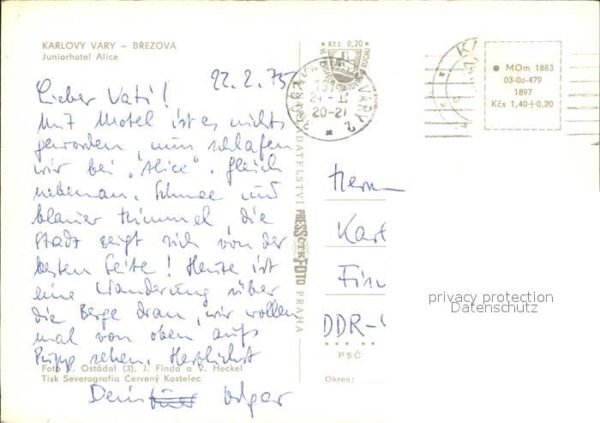 KARLOVY VARY – BŘEZOVÁ
Juniorhotel Alice
22. 2. 75
Lieber Vati!
Mit Motel ist es nichts
geworden, nun schlafen
wir bei "Alice". gleich
nebenan. Schnee und
blauer Himmel die
Stadt zeigt sich von der
besten Seite! Heute ist
eine Wanderung über
die Berge dran, wir wollen
mal von oben aufs
Pupp sehen. Herzlichst
Foto V. Ostádal (3), J. Finda a V. Heckel
Tisk Severografia Červený Kostelec
Dein
PRESSFOTO PRAHA
Kčs 0,20
VARY 2
20-21
MOm 1883
03-0s-479
1897
Kčs 1,40+0,20
Herrn
Karl
Fin
DDR-
PSČ
Okres:
privacy protection
Datenschutz